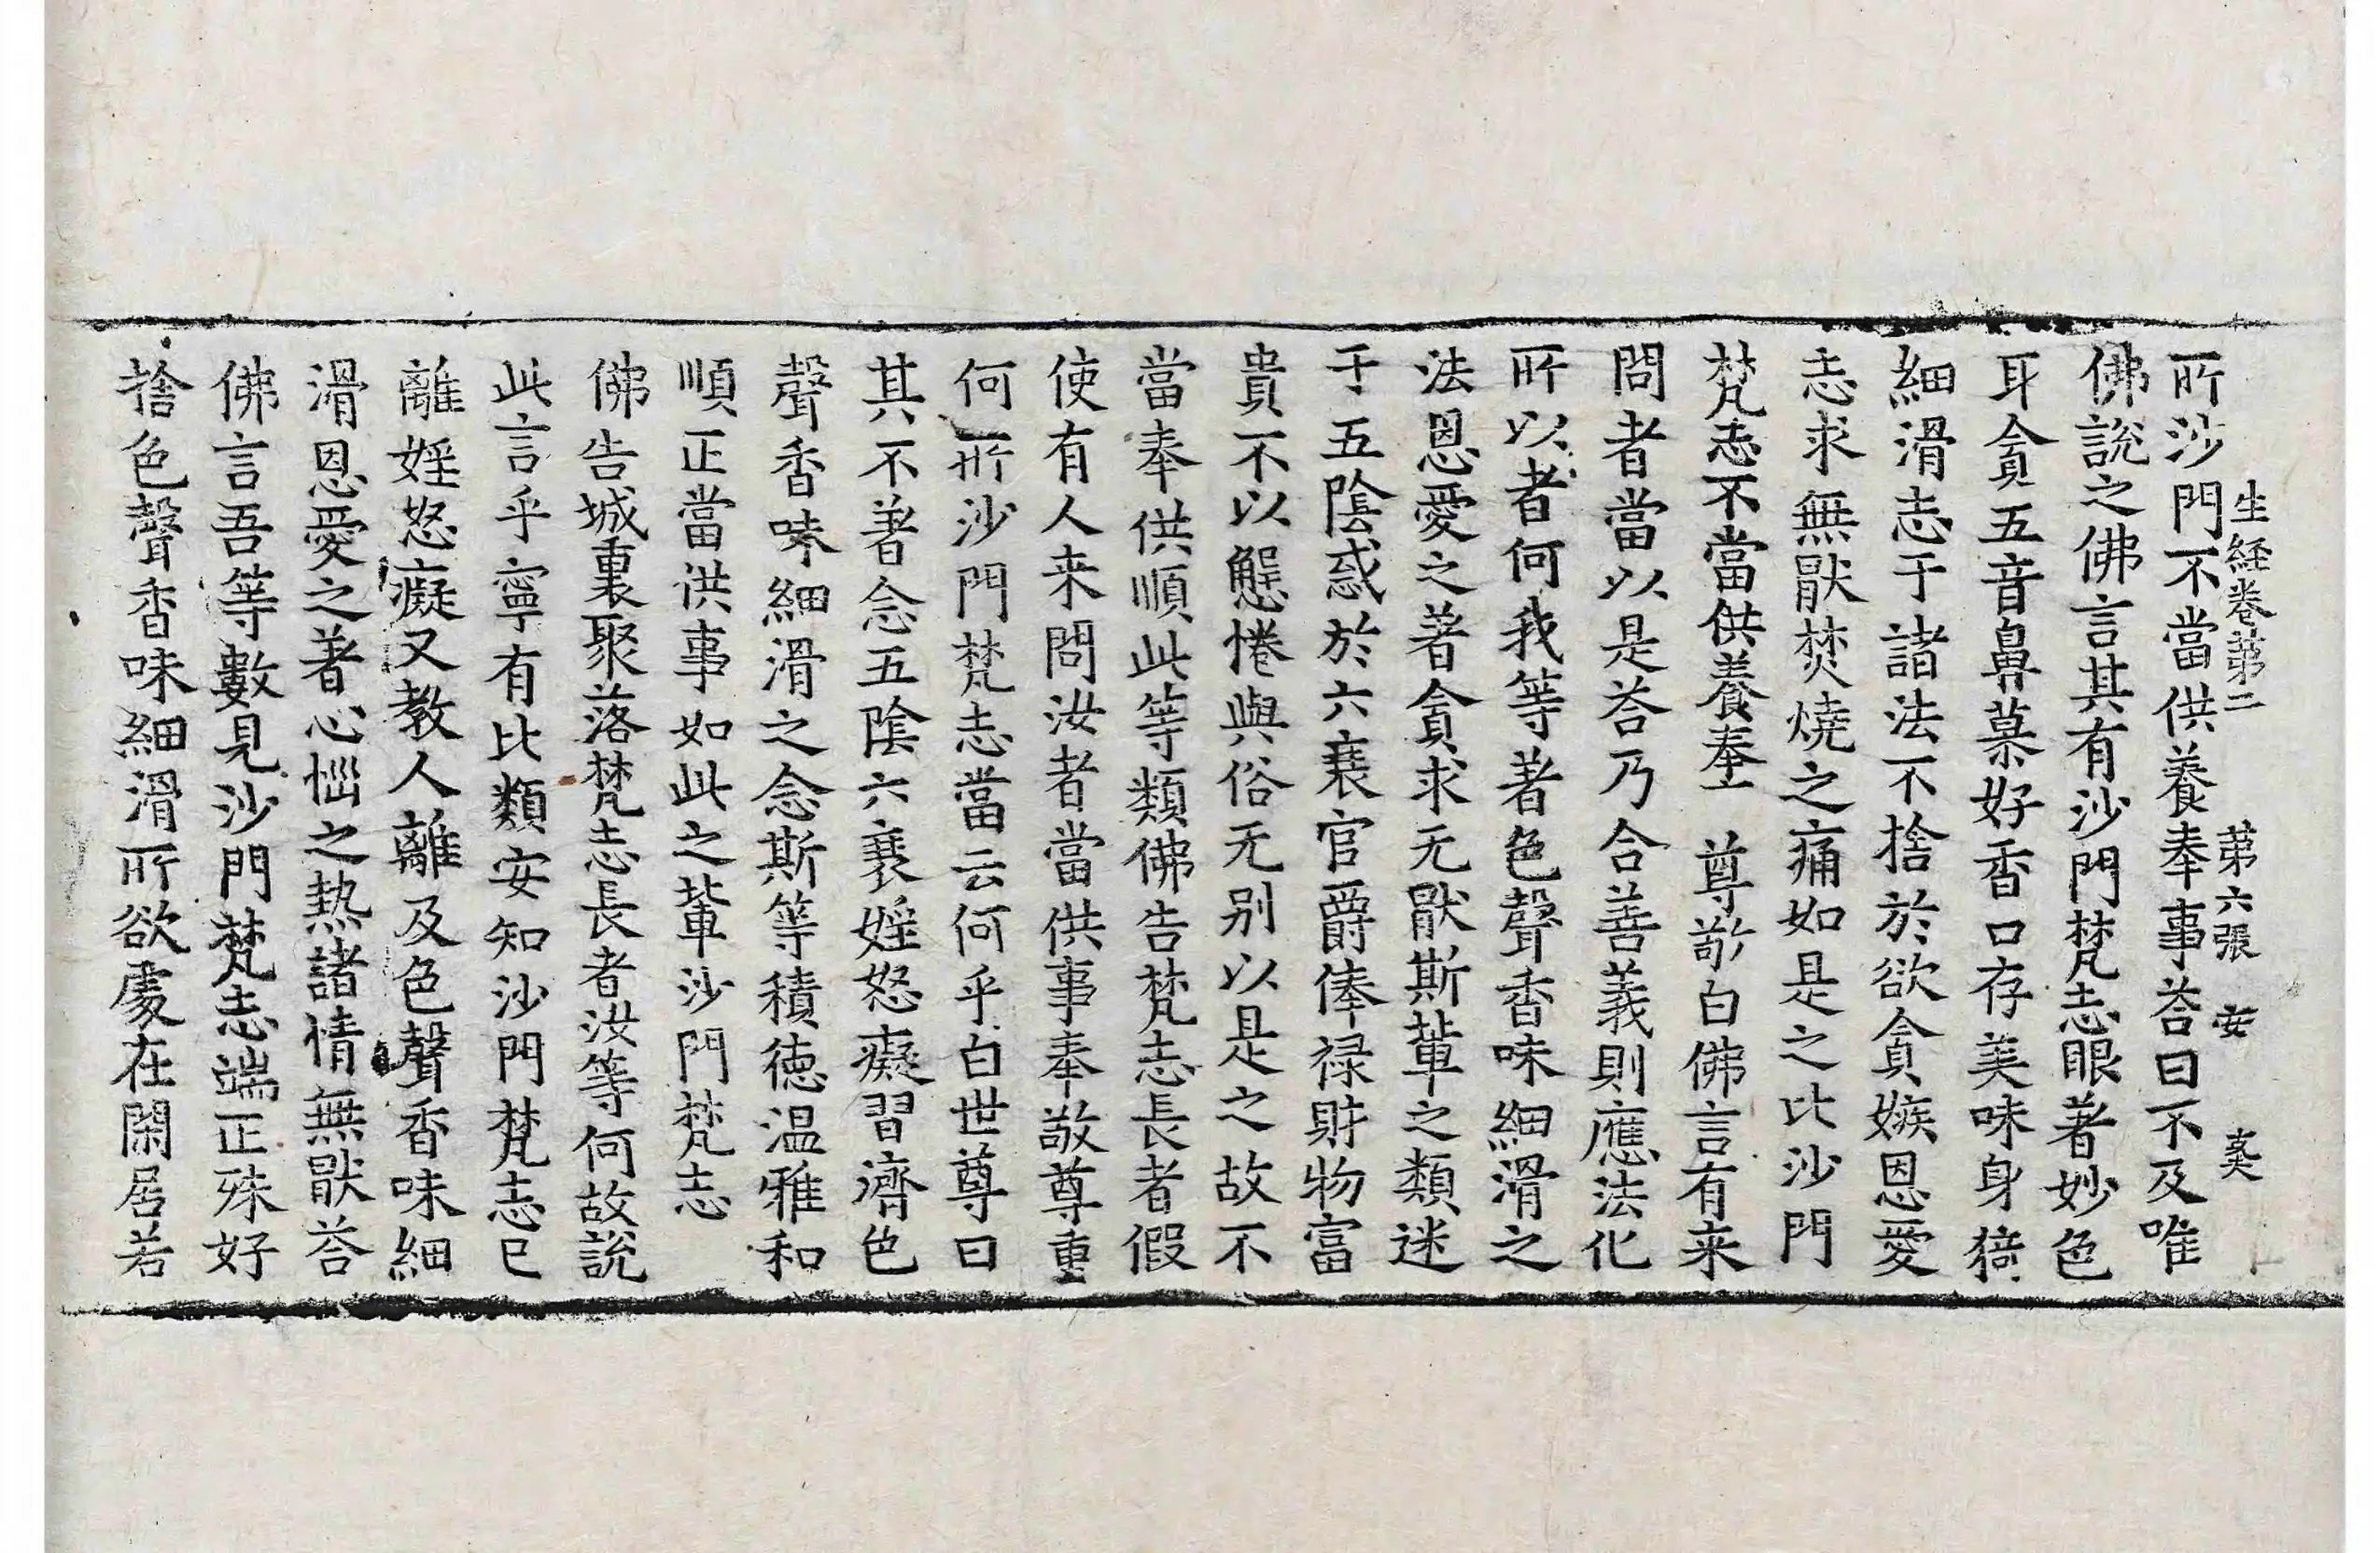 生経卷第二 第六張 安 㐮
所沙門不當供養奉事荅曰不及唯
佛說之佛言其有沙門梵志眼著妙色
耳貪五音鼻慕好香口存美味身猗
細滑志于諸法不捨於欲貪嫉恩愛
志求無猒焚燒之痛如是之比沙門
梵志不當供養奉 尊敬白佛言有来
問者當以是荅乃合善義則應法化
所以者何我等著色聲香味細滑之
法恩愛之著貪求无猒斯軰之類迷
于五陰惑於六衰官爵俸禄財物富
貴不以懈惓與俗无别以是之故不
當奉供順此等類佛告梵志長者假
使有人来問汝者當供事奉敬尊重
何所沙門梵志當云何乎白世尊曰
其不著念五陰六衰婬怒癡習濟色
聲香味細滑之念斯等積徳温雅和
順正當洪事如此之軰沙門梵志
佛告城裏聚落梵志長者汝等何故說
此言乎寧有比類安知沙門梵志已
離婬怒癡又教人離及色聲香味細
滑恩愛之著心惱之熱諸情無猒荅
佛言吾等數見沙門梵志端正殊好
捨色聲香味細滑所欲處在閑居若